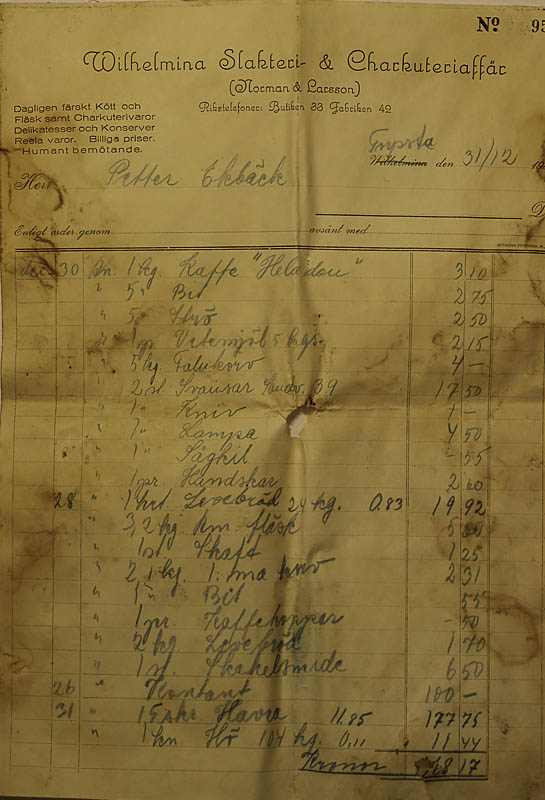 Nº 95
Wilhelmina Slakteri- & Charkuteriaffär
(Norman & Larsson)
Rikstelefoner: Butiken 33 Fabriken 42
Dagligen färskt Kött och
Fläsk samt Charkuterivaror
Delikatesser och Konserver
Reela varor. Billiga priser.
Humant bemötande.
Wilhelmina den 31/12 19
Herr Petter Ekbäck
D
Enligt order genom avsänt med
dec 30 1 kg. Kaffe "Heladon" 3 10
" 5 " Bit 2 75
" 5 Strö 2 50
" 1 p. Vetemjöl 5 kgs 2 15
" 5 kg. Falukorv 4 —
" 2 st. Svansar 39 17 50
" 1 " Kniv 1 —
" 1 " Lampa 4 50
" 1 " Sågkil - 55
" 1 pr. Handskar 2
28 " 1 krt 24 kg. 0.83 19 92
" 3,2 kg. Am. fläsk 5
" 1 st. Skaft 1 25
" 2,1 kg. 1:ma korv 2 31
" 1 " Bit 55
" 1 pr. Kaffekoppar - 50
" 2 kg 1 70
" 1 st. Skakelsmide 6 50
26 " Kontant 100 —
31 " 15 skr Havra 11.85 177 75
" 1 bn. Hö 104 kg. 0,11 11 44
Kronor 68 17